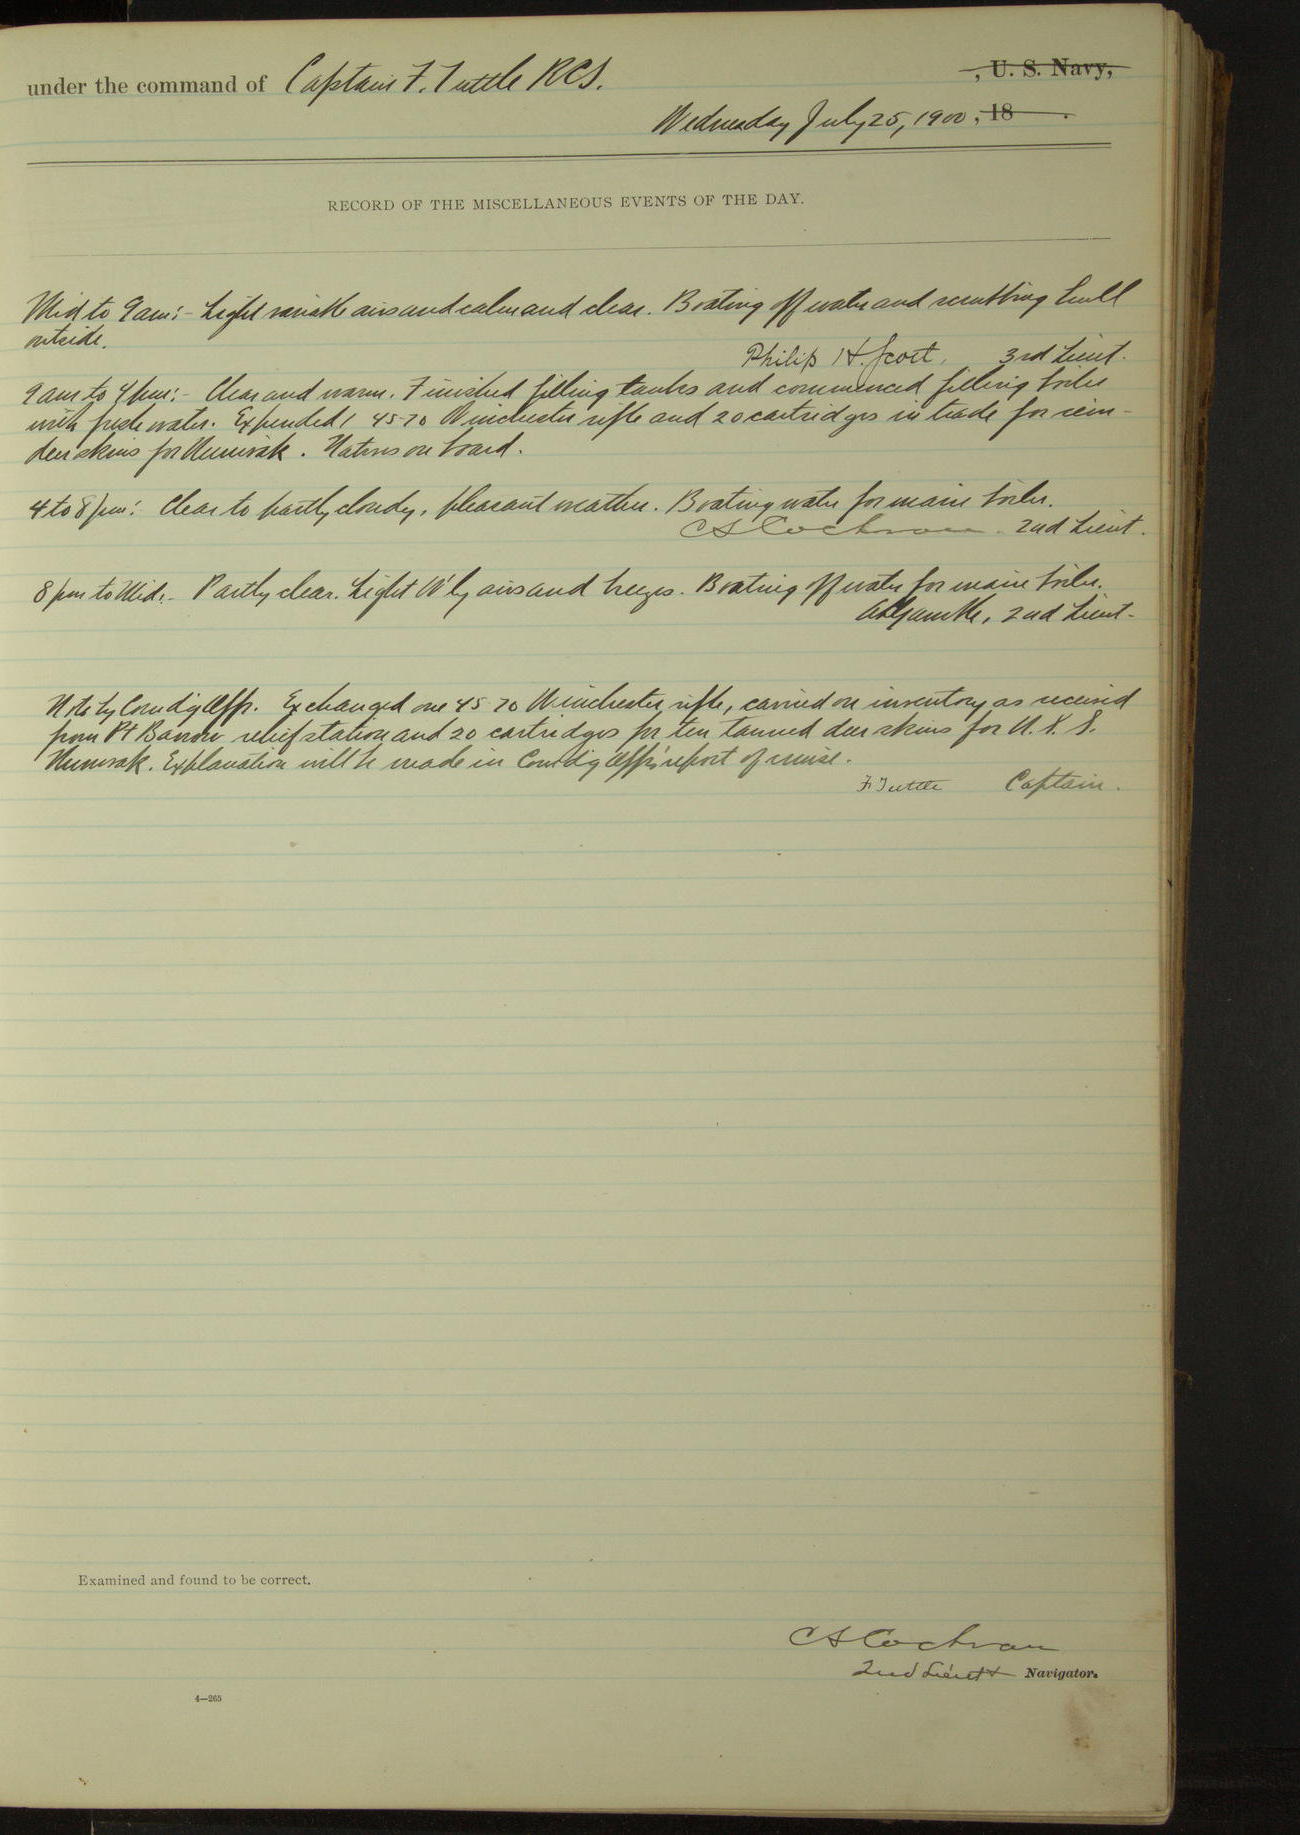 under the command of Captain F. Tuttle RCS. , U. S. Navy,
Wednesday July 25, 1900, 18 .
RECORD OF THE MISCELLANEOUS EVENTS OF THE DAY.
Mid to 9 am:- Light variable airs and calm and clear. Boating off water and scrubbing hull
outside.
Philip H. Scott, 3rd Lieut.
9 am to 4 pm:- Clear and warm. Finished filling tanks and commenced filling boiler
with fresh water. Expended 1 45-70 Winchester rifle and 20 cartridges in trade for rein-
deer skins for Nunivak. Natives on board.
4 to 8 pm: Clear to partly cloudy, pleasant weather. Boating water for main boiler.
C S Cochran 2nd Lieut.
8 pm to Mid:- Partly clear. Light W'ly airs and breezes. Boating off water for main boiler.
2nd Lieut-
Note by Comdg Offr. Exchanged one 45 70 Winchester rifle, carried on inventory as received
from Pt Barrow relief station and 20 cartridges for ten tanned deer skins for U. S. S.
Nunivak. Explanation will be made in Comdg Offr's report of cruise.
F Tuttle Captain.
Examined and found to be correct.
C S Cochran
2nd Lieut Navigator.
4—265